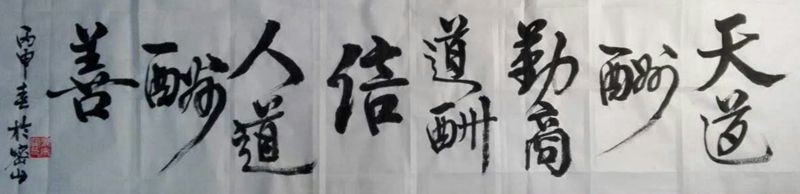 天道
酬
勤商
道酬
信
人道
酬
善
丙申春於密山